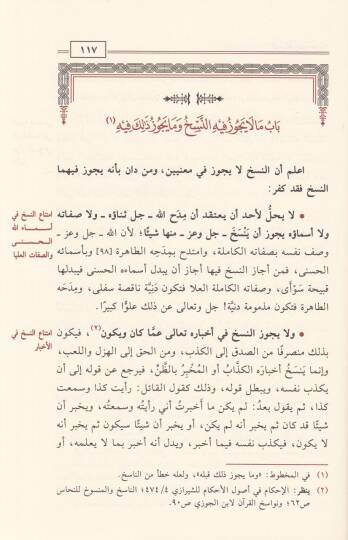 ١١٧
بَابُ مَا لَا يَجُوزُ فِيهِ النَّسْخُ وَمَا يَجُوزُ ذَلِكَ فِيهِ (١)
اعلم أن النسخ لا يجوز في معنيين، ومن دان بأنه يجوز فيهما
النسخ فقد كفر:
• لا يحلُّ لأحد أن يعتقد أن مِدَح الله ـ جل ثناؤه ـ ولا صفاته
امتناع النسخ في
ولا أسماؤه يجوز أن يَنْسَخَ ـ جل وعز ـ منها شيئًا؛ لأن الله ـ جل وعز ـ
أسماء الله
وصف نفسه بصفاته الكاملة، وامتدح بمِدَحِه الطاهرة [٩٨] وبأسمائه
الحسنى
والصفات العليا
الحسنى، فمن أجاز فيها أجاز أن يبدل أسماءه الحسنى فيبدلها
قبيحة سَوْأَى، وصفاته العلا فتكون دَنيَّة ناقصة سفلى، ومِدَحَه
الطاهرة فتكون مذمومة دنيَّة! جل وتعالى عن ذلك علوًّا كبيرًا.
• ولا يجوز النسخ في أخباره تعالى عمَّا كان ويكون(٢)، فيكون
امتناع النسخ في
الأخبار
بذلك منصرفًا من الصدق إلى الكذب، ومن الحق إلى الهزل واللعب،
وإنما يَنسَخُ أخبارَه الكذَّابُ أو المُخبِرُ بالظَّنِّ، فيرجع عن قوله إلى أن
يكذب نفسه، ويبطل قوله، وذلك كقول القائل: رأيت كذا وسمعت
كذا، ثم يقول بعدُ: لم يكن ما أَخبرتُ أني رأيتُه وسمعتُه، ويخبر أن
شيئًا قد كان ثم يخبر أنه لم يكن، أو يخبر أن شيئًا سيكون ثم يخبر أنه
لا يكون، فيكذب نفسه فيما أخبر، ويدل أنه أخبر بما لا يعلمه، أو
(١) في المخطوط: «وما يجوز ذلك قبله»، ولعله خطأ من الناسخ.
(٢) ينظر: الإحكام في أصول الأحكام للشيرازي ٤/ ٤٧٤؛ الناسخ والمنسوخ للنحاس
ص٦٢؛ ونواسخ القرآن لابن الجوزي ص٩٠.